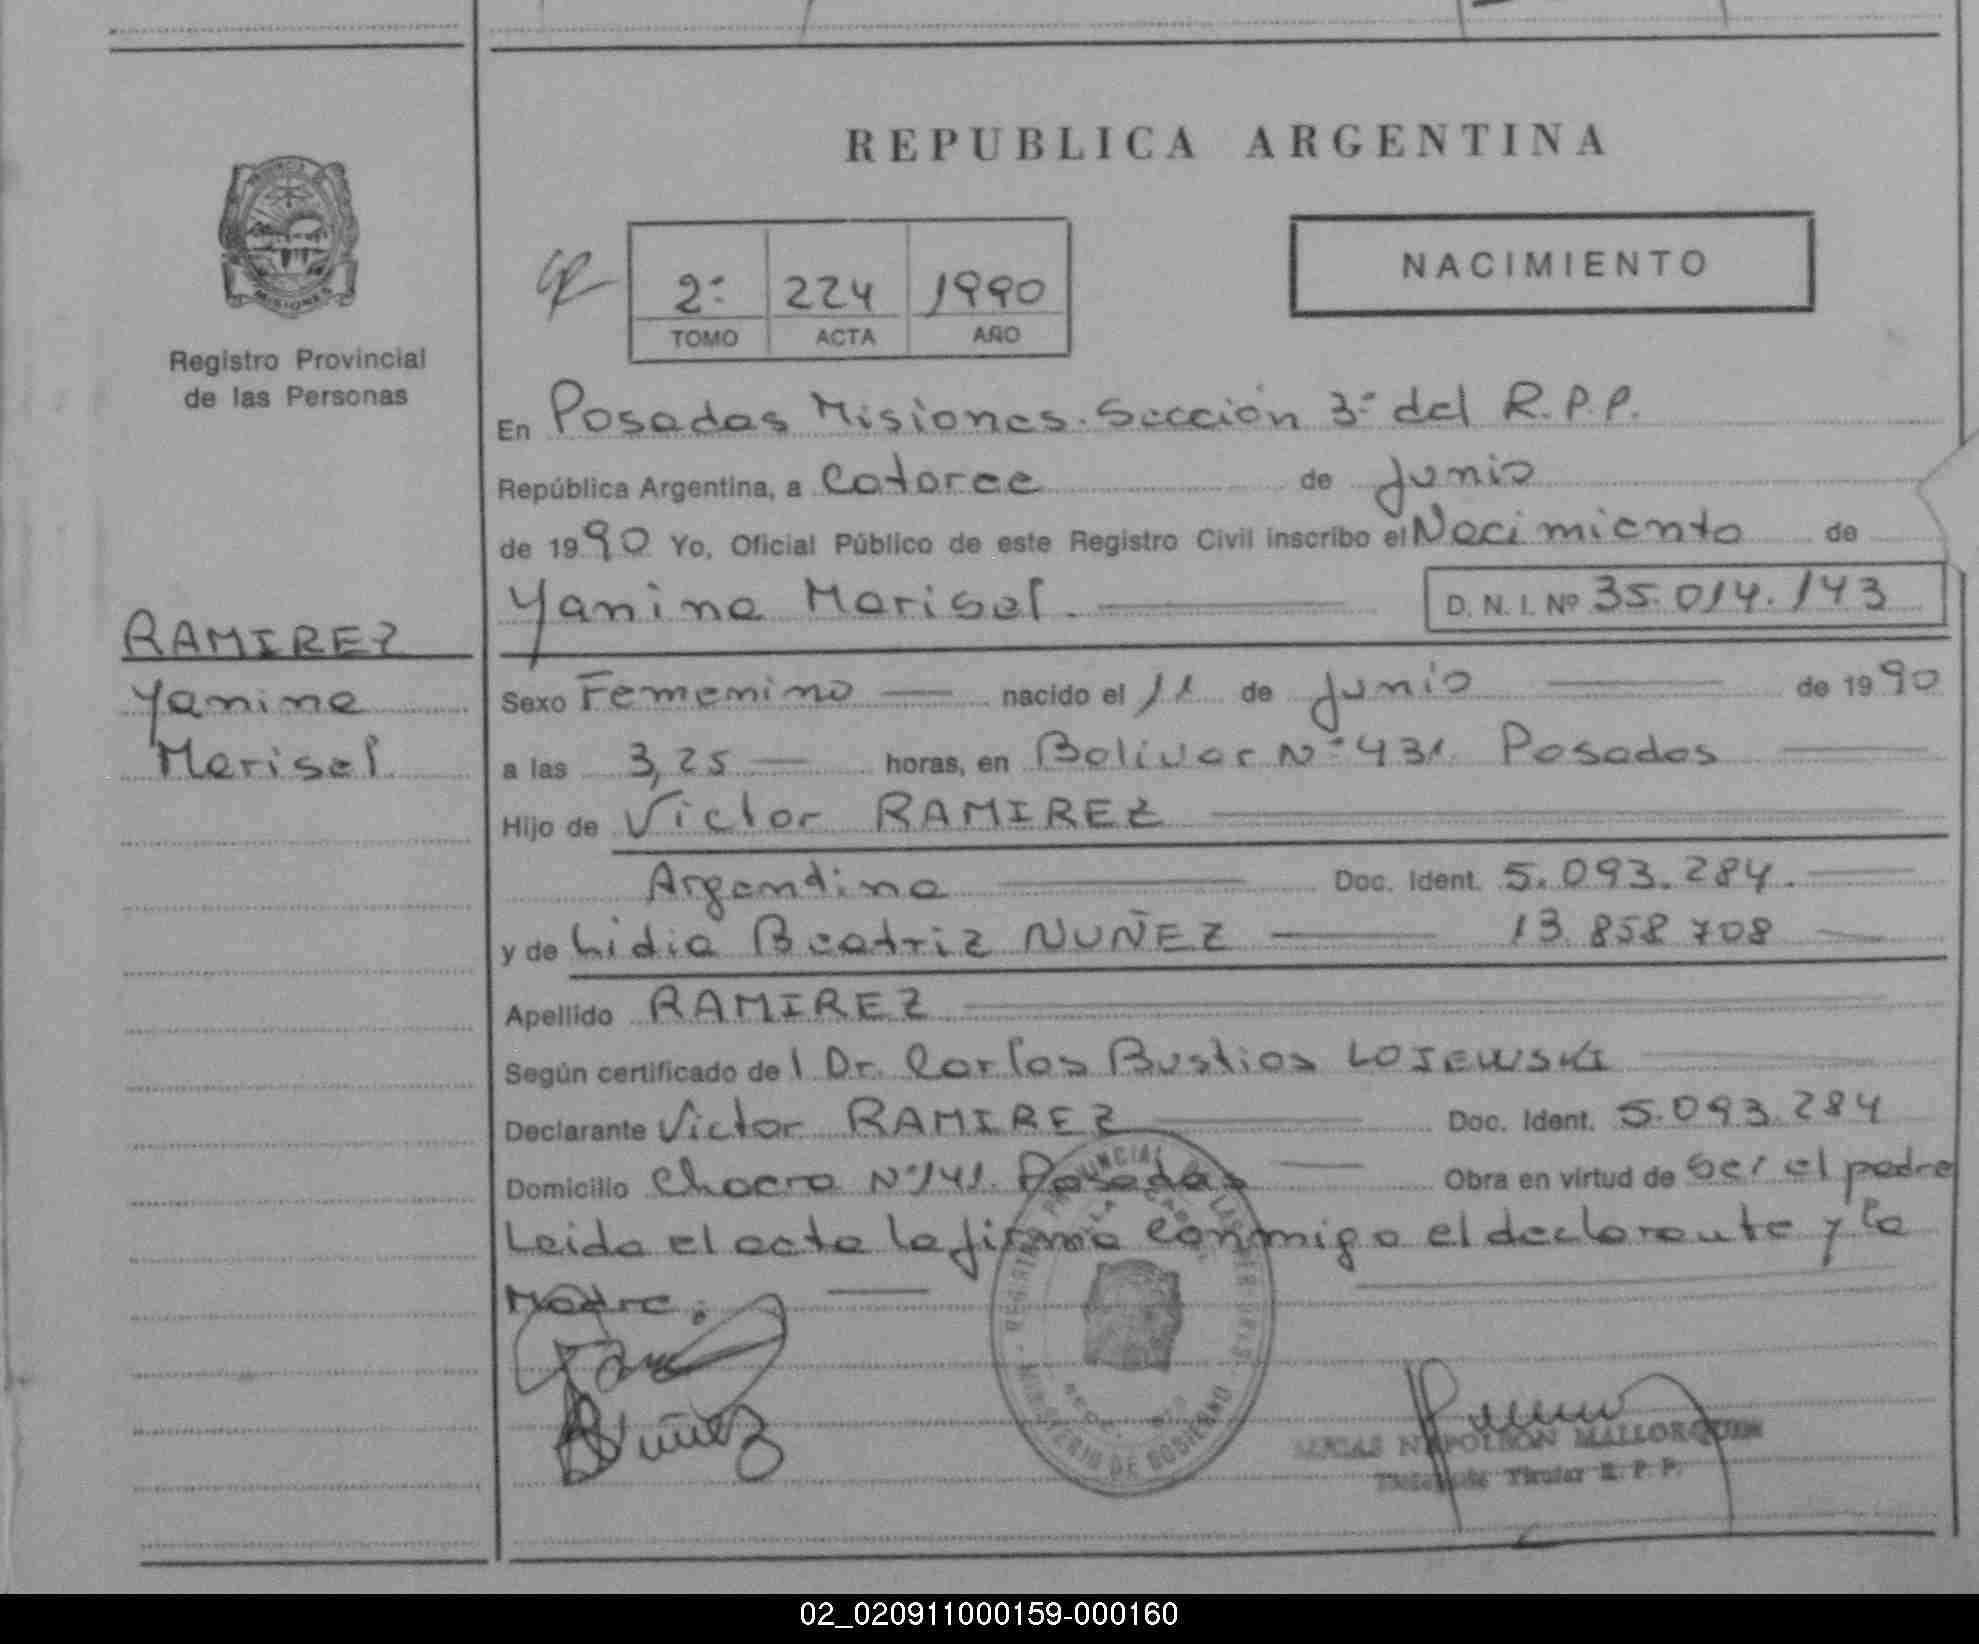 REPUBLICA ARGENTINA
NACIMIENTO
MISIONES
Registro Provincial
de las Personas
2º 224 1990
TOMO ACTA AÑO
En Posadas Misiones. Sección 3º del R.P.P.
República Argentina, a Catorce de Junio
de 1990 Yo, Oficial Público de este Registro Civil inscribo el Nacimiento de
Yanina Marisol. D. N. I. Nº 35.014.143
RAMIREZ
Yanina
Marisol.
Sexo Femenino nacido el 11 de Junio de 1990
a las 3,25 horas, en Bolivar Nº 431. Posadas
Hijo de Victor RAMIREZ
Argentina Doc. Ident. 5.093.284.
y de Lidia Beatriz NUÑEZ 13.858.708
Apellido RAMIREZ
Según certificado del Dr. Carlos Bustios LOJEWSKI
Declarante Victor RAMIREZ Doc. Ident. 5.093.284
Domicilio Chacra Nº 141. Posadas Obra en virtud de Ser el padre
Leida el acta la firma conmigo el declarante y la
Madre.
Nuñez
MINISTERIO DE GOBIERNO
LUCAS NAPOLEON MALLORQUIN
Titular R. P. P.
02_020911000159-000160